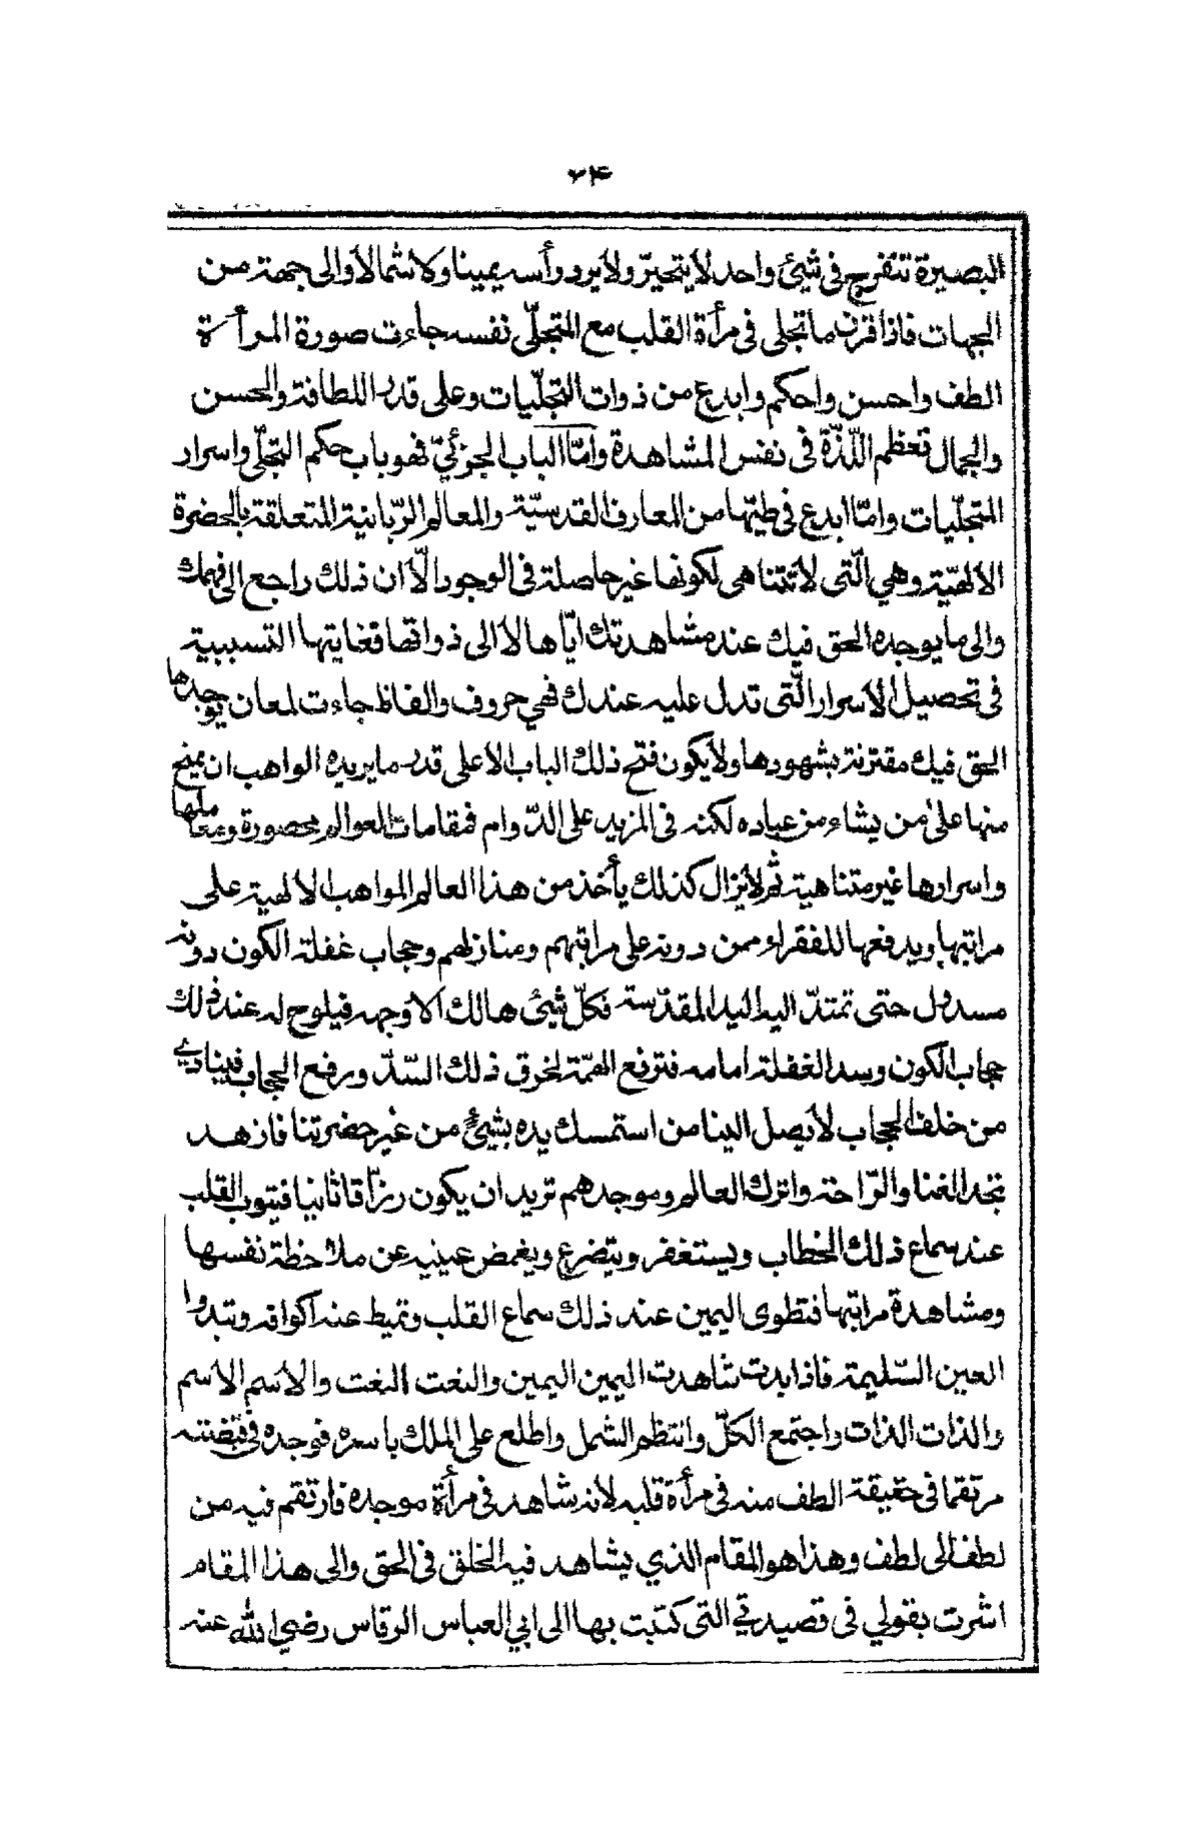 ٢٤
البصيرة تتفرج فى شيئ واحد لا يتحيّر ولا يرد وأسه يمينا وكا شمالا والى جهة من
الجهات فاذا قرن ما تجلى فى مرأة القلب مع المتجلّى نفسه جاءت صورة المرأة
الطف واحسن واحكم وابدع من ذوات التجلّيات وعلى قدر اللطافة والحسن
والجمال تعظم اللّذّة فى نفس المشاهدة وامّا الباب الجزئيّ فهو باب حكم التجلّى واسرار
المتجلّيات وامّا ابدع فى طيّها من المعارف القدسيّة والمعالم الرّبانية المتعلقة بالحضرة
الالهيّة وهي الّتى لا تتناهى لكونها غير حاصلة فى الوجود الّا ان ذلك راجع الى فهمك
والى ما يوجده الحق فيك عند مشاهدتك ايّاها لا الى ذواتها فغايتها التسببية
فى تحصيل الاسرار الّتى تدل عليه عندك فهي حروف والفاظ جاءت لمعان يوجدها
الحق فيك مقترنة بشهودها ولا يكون فتح ذلك الباب الا على قدر ما يريده الواهب ان يمنح
منها على من يشاء من عباده لكنه فى المزيد على الدّوام فمقامات العوالم محصورة ومعاملها
واسرارها غير متناهية ثم لا يزال كذلك يأخذ من هذا العالم المواهب الالهية على
مراتبها ويدفعها للفقراء ممن دونه على مراتبهم ومنازلهم وحجاب غفلة الكون دونه
مسدول حتى تمتدّ اليه اليد المقدّسة فكلّ شيئ هالك الا وجهه فيلوح له عند ذلك
حجاب الكون وسد الغفلة امامه فترفع الهمّة لخرق ذلك السّدّ ورفع الحجاب فينادي
من خلف الحجاب لا يصل الينا من استمسك يده بشيئ من غير حضرتنا فازهد
تجد الغنا والرّاحة واترك العالم وموجدهم تريد ان يكون رزّاقا ثانيا فيتوب القلب
عند سماع ذلك الخطاب ويستغفر ويتضرع ويغمض عينيه عن ملاحظة نفسها
ومشاهدة مراتبها فتطوى اليمين عند ذلك سماع القلب وتميط عنه اكوانه وتبدوا
العين السّليمة فاذا بدت شاهدت اليمين اليمين والنعت النعت والاسم الاسم
والذات الذات واجتمع الكلّ وانتظم الشمل واطلع على الملك باسره فوجده فى قبضته
مرتقما فى حقيقة الطف منه فى مرأة قلبه لانه شاهد فى مرأة موجده فارتقم فيه من
لطف الى لطف وهذا هو المقام الذي يشاهد فيه الخلق فى الحق والى هذا المقام
اشرت بقولي فى قصيدتي التى كتبت بها الى ابي العباس الرقاس رضي الله عنه